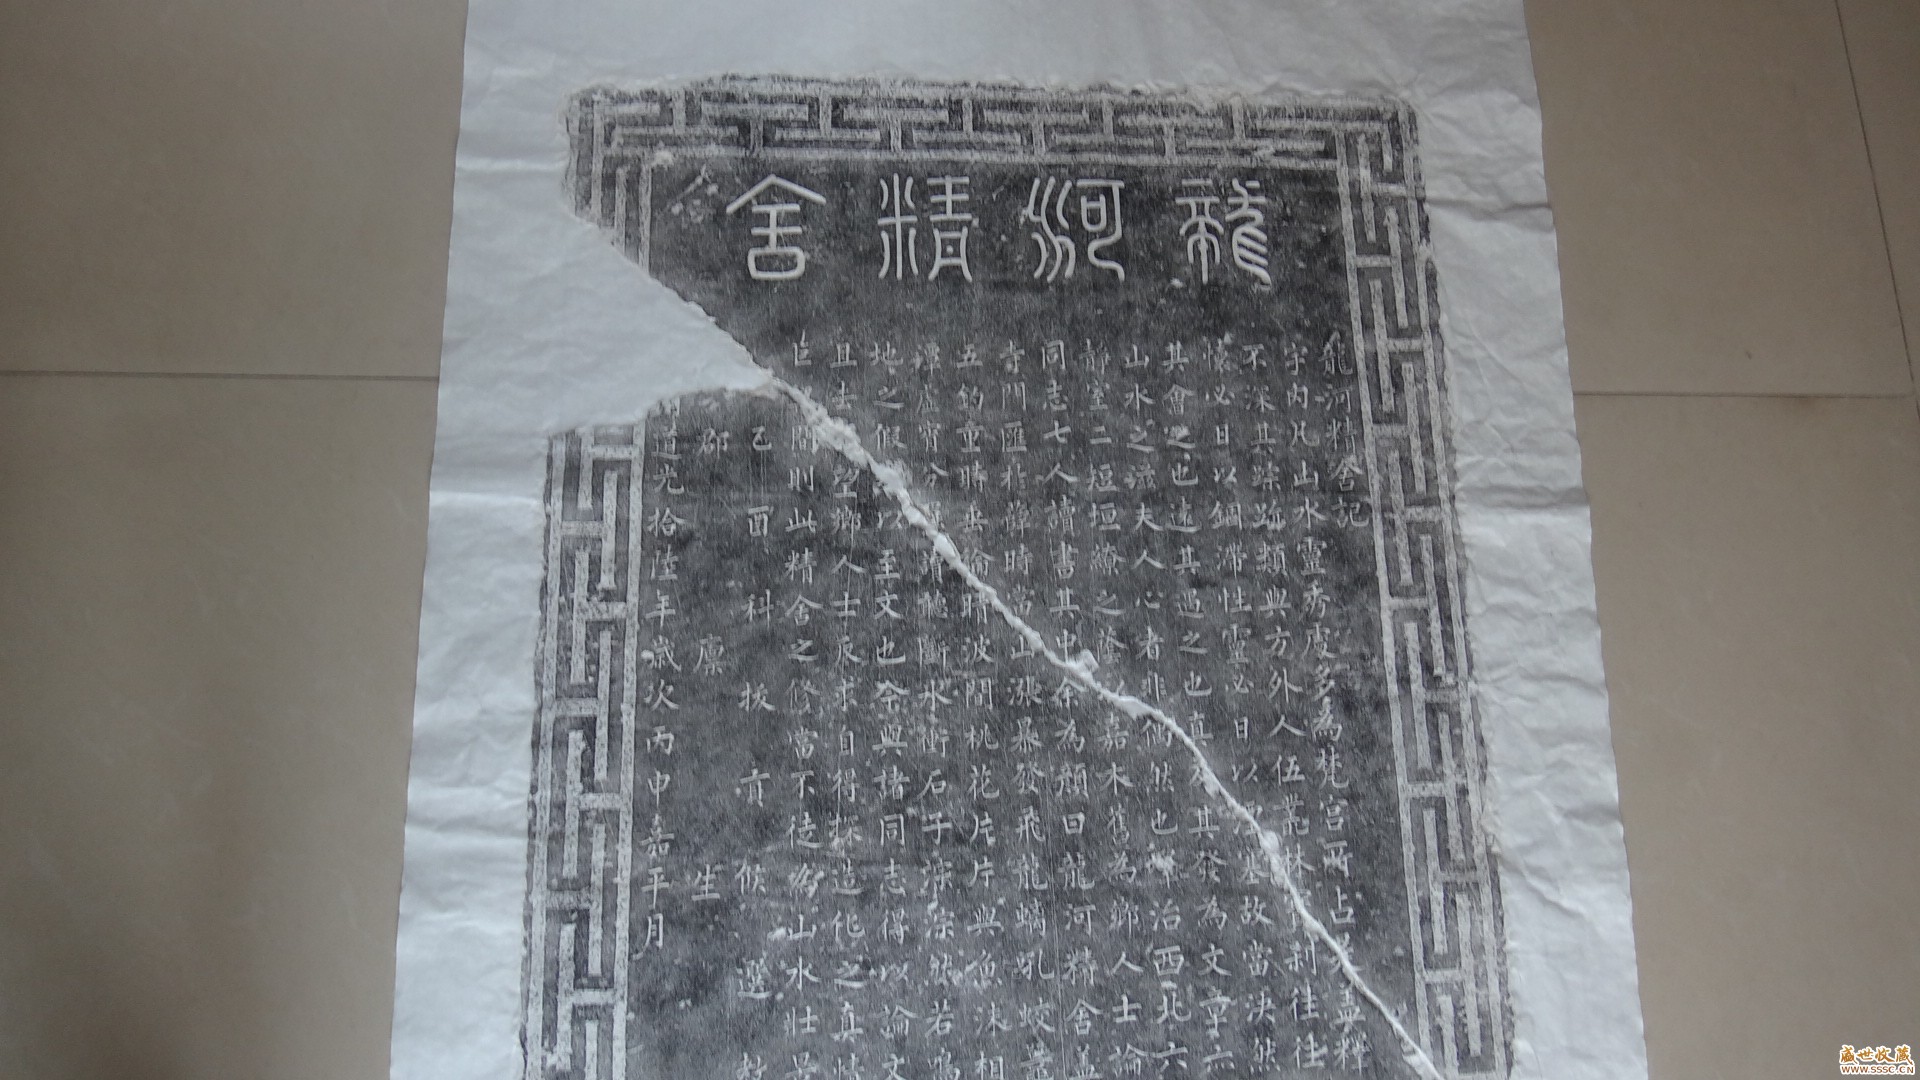 龍河精舍
龍河精舍記
宇內凡山水靈秀處多為梵宮所占是盖釋
不深其蹤跡類與方外人伍叢林刹往往
懷必日以錮滯性靈必日以故當決然
其會之也遠其遇之也真其發為文章六
山水之夫人心者非偶然也治西北六
靜室二短垣繚之蔭嘉木舊為鄉人士論
同志七人讀書其中余為顏曰龍河精舍盖
寺門匯於時漲暴發飛龍螭吼蛟
五釣童時垂綸時波間桃花片片與魚沫相
潭虛分聽斷水衝石子淙淙然若鳴
地之假以至文也余與諸同志得以論文
且去望鄉人士辰求自得探造化之真情
巨間則此精舍之修當不徒為山水壯
己酉科拔貢候選教
郡廪生
道光拾陸年歲次丙申嘉平月
盛世收藏
WWW.SSSC.CN